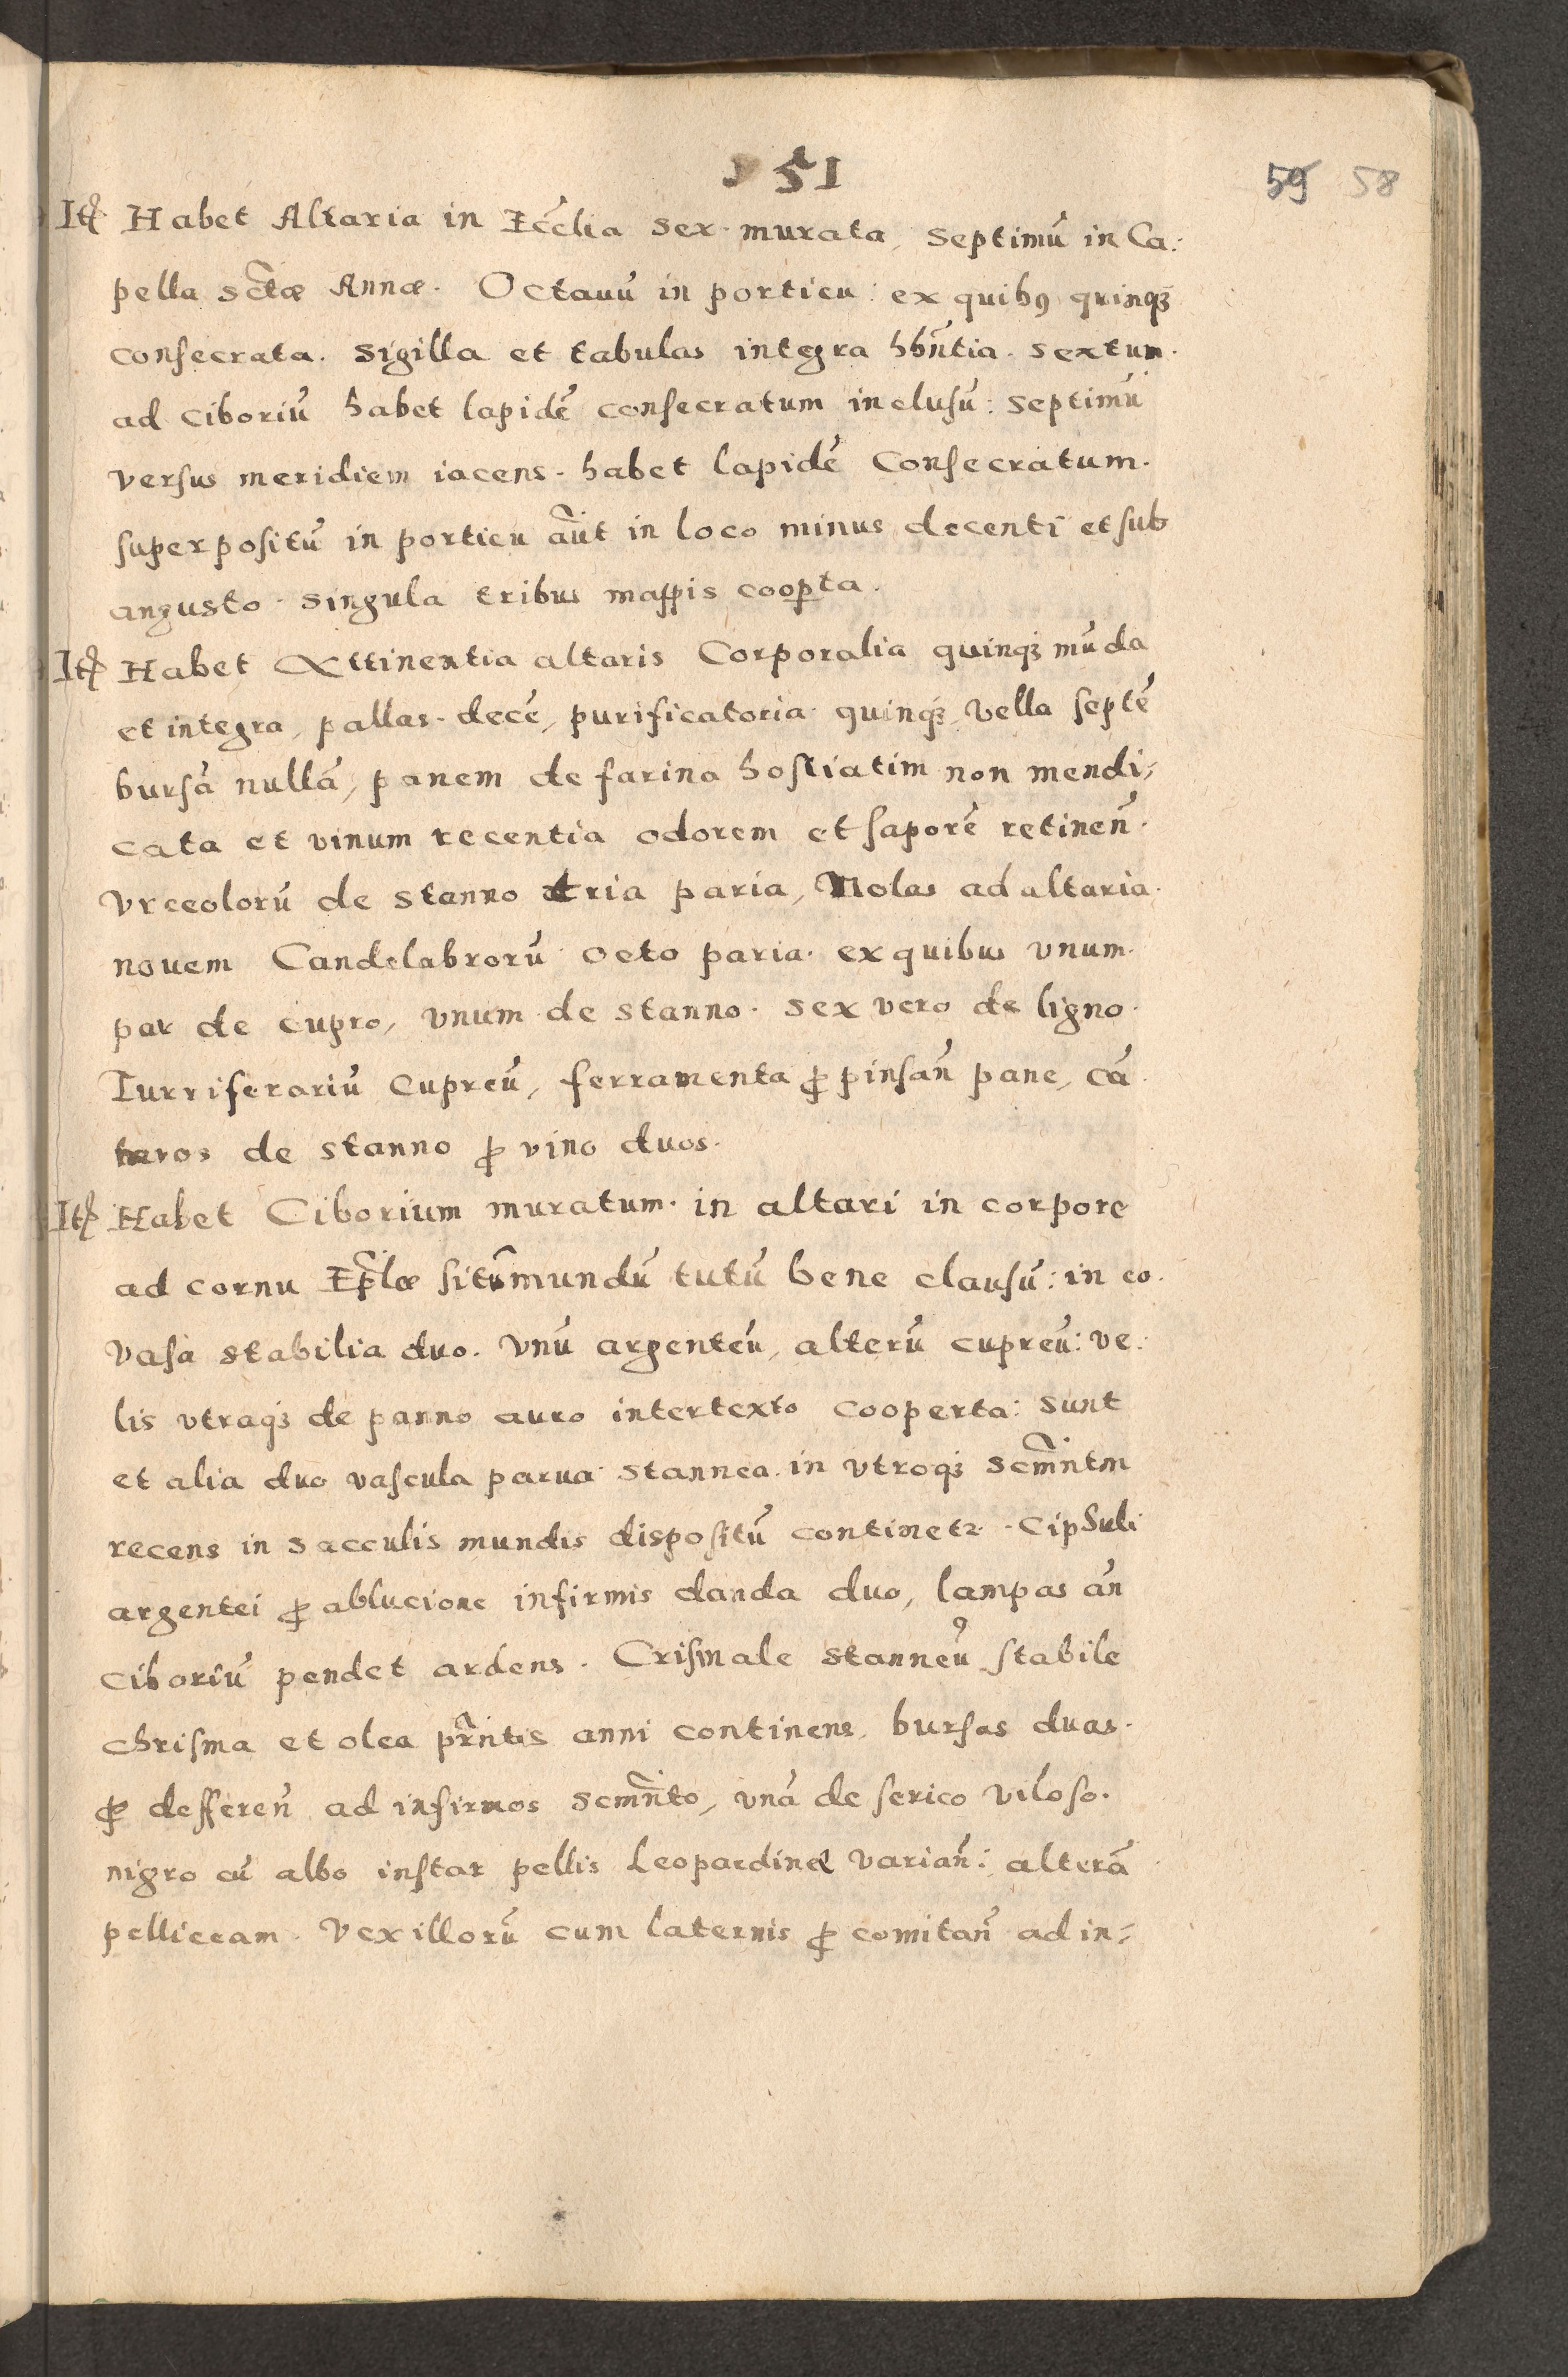 51
59 58
Itē Habet Altaria in Eccłia sex murata, septimū in Ca:
pella sctæ Annæ. Octauū in porticu: ex quibꝯ quinqꝫ
consecrata. sigilla et tabulas integra hñtia. sextum.
ad Ciboriū habet lapidē consecratum inclusū: septimū
versus meridiem iacens. habet lapidē Consecratum.
superpositū in porticu aūt in loco minus decenti et sub
angusto. singula tribus mappis coopta.
Itē Habet Attinentia altaris Corporalia quinqꝫ mūda
et integra, pallas decē, purificatoria quinqꝫ, vella septē
bursā nullā, panem de farina hostiatim non mendi,
cata et vinum recentia odorem et saporē retineñ.
Vrceolorū de stanno tria paria, Nolas ad altaria.
nouem Candelabrorū octo paria. ex quibus vnum.
par de cupro, vnum de stanno. sex vero de ligno.
Turriferariū Cupreū, ferramenta ꝓ pinsañ pane, cā
teros de stanno ꝓ vino duos.
Itē Habet Ciborium muratum. in altari in corpore
ad cornu Eplæ sitūmundū tutū bene clausū: in eo.
Vasa stabilia duo. Vnū argenteū, alterū cupreū: ve:
lis vtraqꝫ de panno auro intertexto cooperta: sunt
et alia duo vascula parua stannea. in vtroqꝫ scm̄ntm
recens in sacculis mundis dispositū continetr. Ciphuli
argentei ꝓ ablucione infirmis danda duo, lampas añ
Ciboriū pendet ardens. Crismale stanneū stabile
chrisma et olea prñtis anni continens, bursas duas.
ꝓ deffereñ ad infirmos scm̄nto, vnā de serico viloso.
nigro cū albo instar pellis Leopardinæ variañ: alterā
pelliceam. Vexillorū cum laternis ꝓ comitañ ad in,